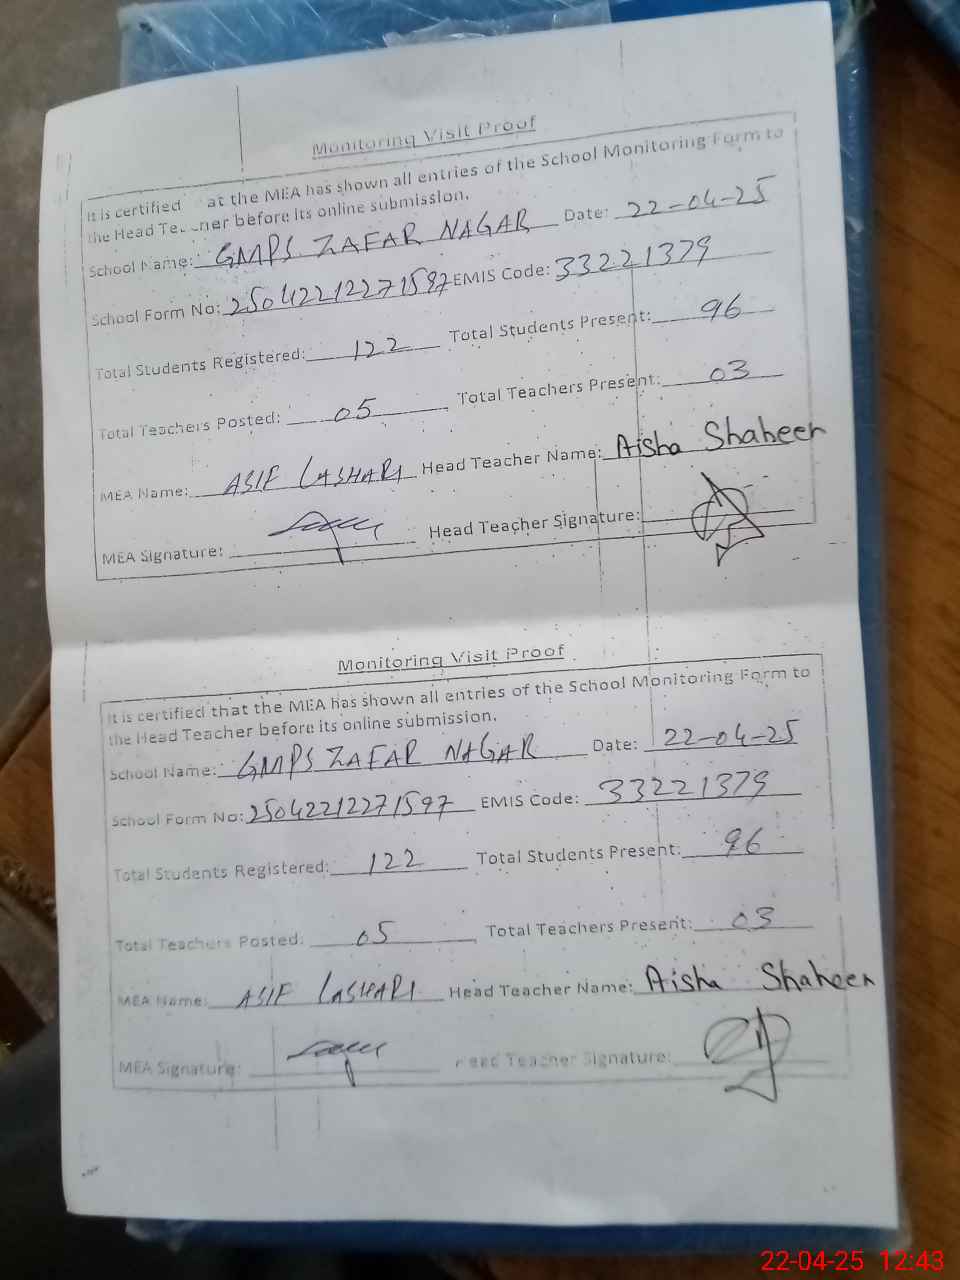 Monitoring Visit Proof
It is certified at the MEA has shown all entries of the School Monitoring Form to
the Head before its online submission.
School Name: GMPS ZAFAR NAGAR Date: 22-04-25
School Form No: 25042212271597 EMIS Code: 33221379
Total Students Registered: 122 Total Students Present: 96
Total Teachers Posted: 05 Total Teachers Present: 03
MEA Name: ASIF LASHARI Head Teacher Name: Aisha Shaheen
MEA Signature: Head Teacher Signature:
Monitoring Visit Proof
It is certified that the MEA has shown all entries of the School Monitoring Form to
the Head Teacher before its online submission.
School Name: GMPS ZAFAR NAGAR Date: 22-04-25
School Form No: 25042212271597 EMIS Code: 33221379
Total Students Registered: 122 Total Students Present: 96
Total Teachers Posted: 05 Total Teachers Present: 03
MEA Name: ASIF LASHARI Head Teacher Name: Aisha Shaheen
MEA Signature: Head Teacher Signature:
22-04-25 12:43